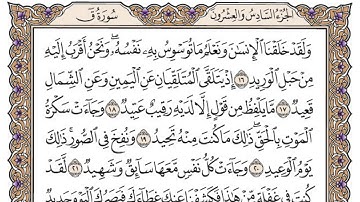 سُورَةُ قٓ الجُزْءُ السَّادِسُ وَالعِشْرُونَ
وَلَقَدْ خَلَقْنَا الْإِنسَٰنَ وَنَعْلَمُ مَا تُوَسْوِسُ بِهِۦ نَفْسُهُۥ ۖ وَنَحْنُ أَقْرَبُ إِلَيْهِ
مِنْ حَبْلِ الْوَرِيدِ ١٦ إِذْ يَتَلَقَّى الْمُتَلَقِّيَانِ عَنِ الْيَمِينِ وَعَنِ الشِّمَالِ
قَعِيدٌ ١٧ مَّا يَلْفِظُ مِن قَوْلٍ إِلَّا لَدَيْهِ رَقِيبٌ عَتِيدٌ ١٨ وَجَآءَتْ سَكْرَةُ
الْمَوْتِ بِالْحَقِّ ۖ ذَٰلِكَ مَا كُنتَ مِنْهُ تَحِيدُ ١٩ وَنُفِخَ فِي الصُّورِ ۚ ذَٰلِكَ
يَوْمُ الْوَعِيدِ ٢٠ وَجَآءَتْ كُلُّ نَفْسٍ مَّعَهَا سَآئِقٌ وَشَهِيدٌ ٢١ لَّقَدْ
كُنتَ فِي غَفْلَةٍ مِّنْ هَٰذَا فَكَشَفْنَا عَنكَ غِطَآءَكَ فَبَصَرُكَ الْيَوْمَ حَدِيدٌ